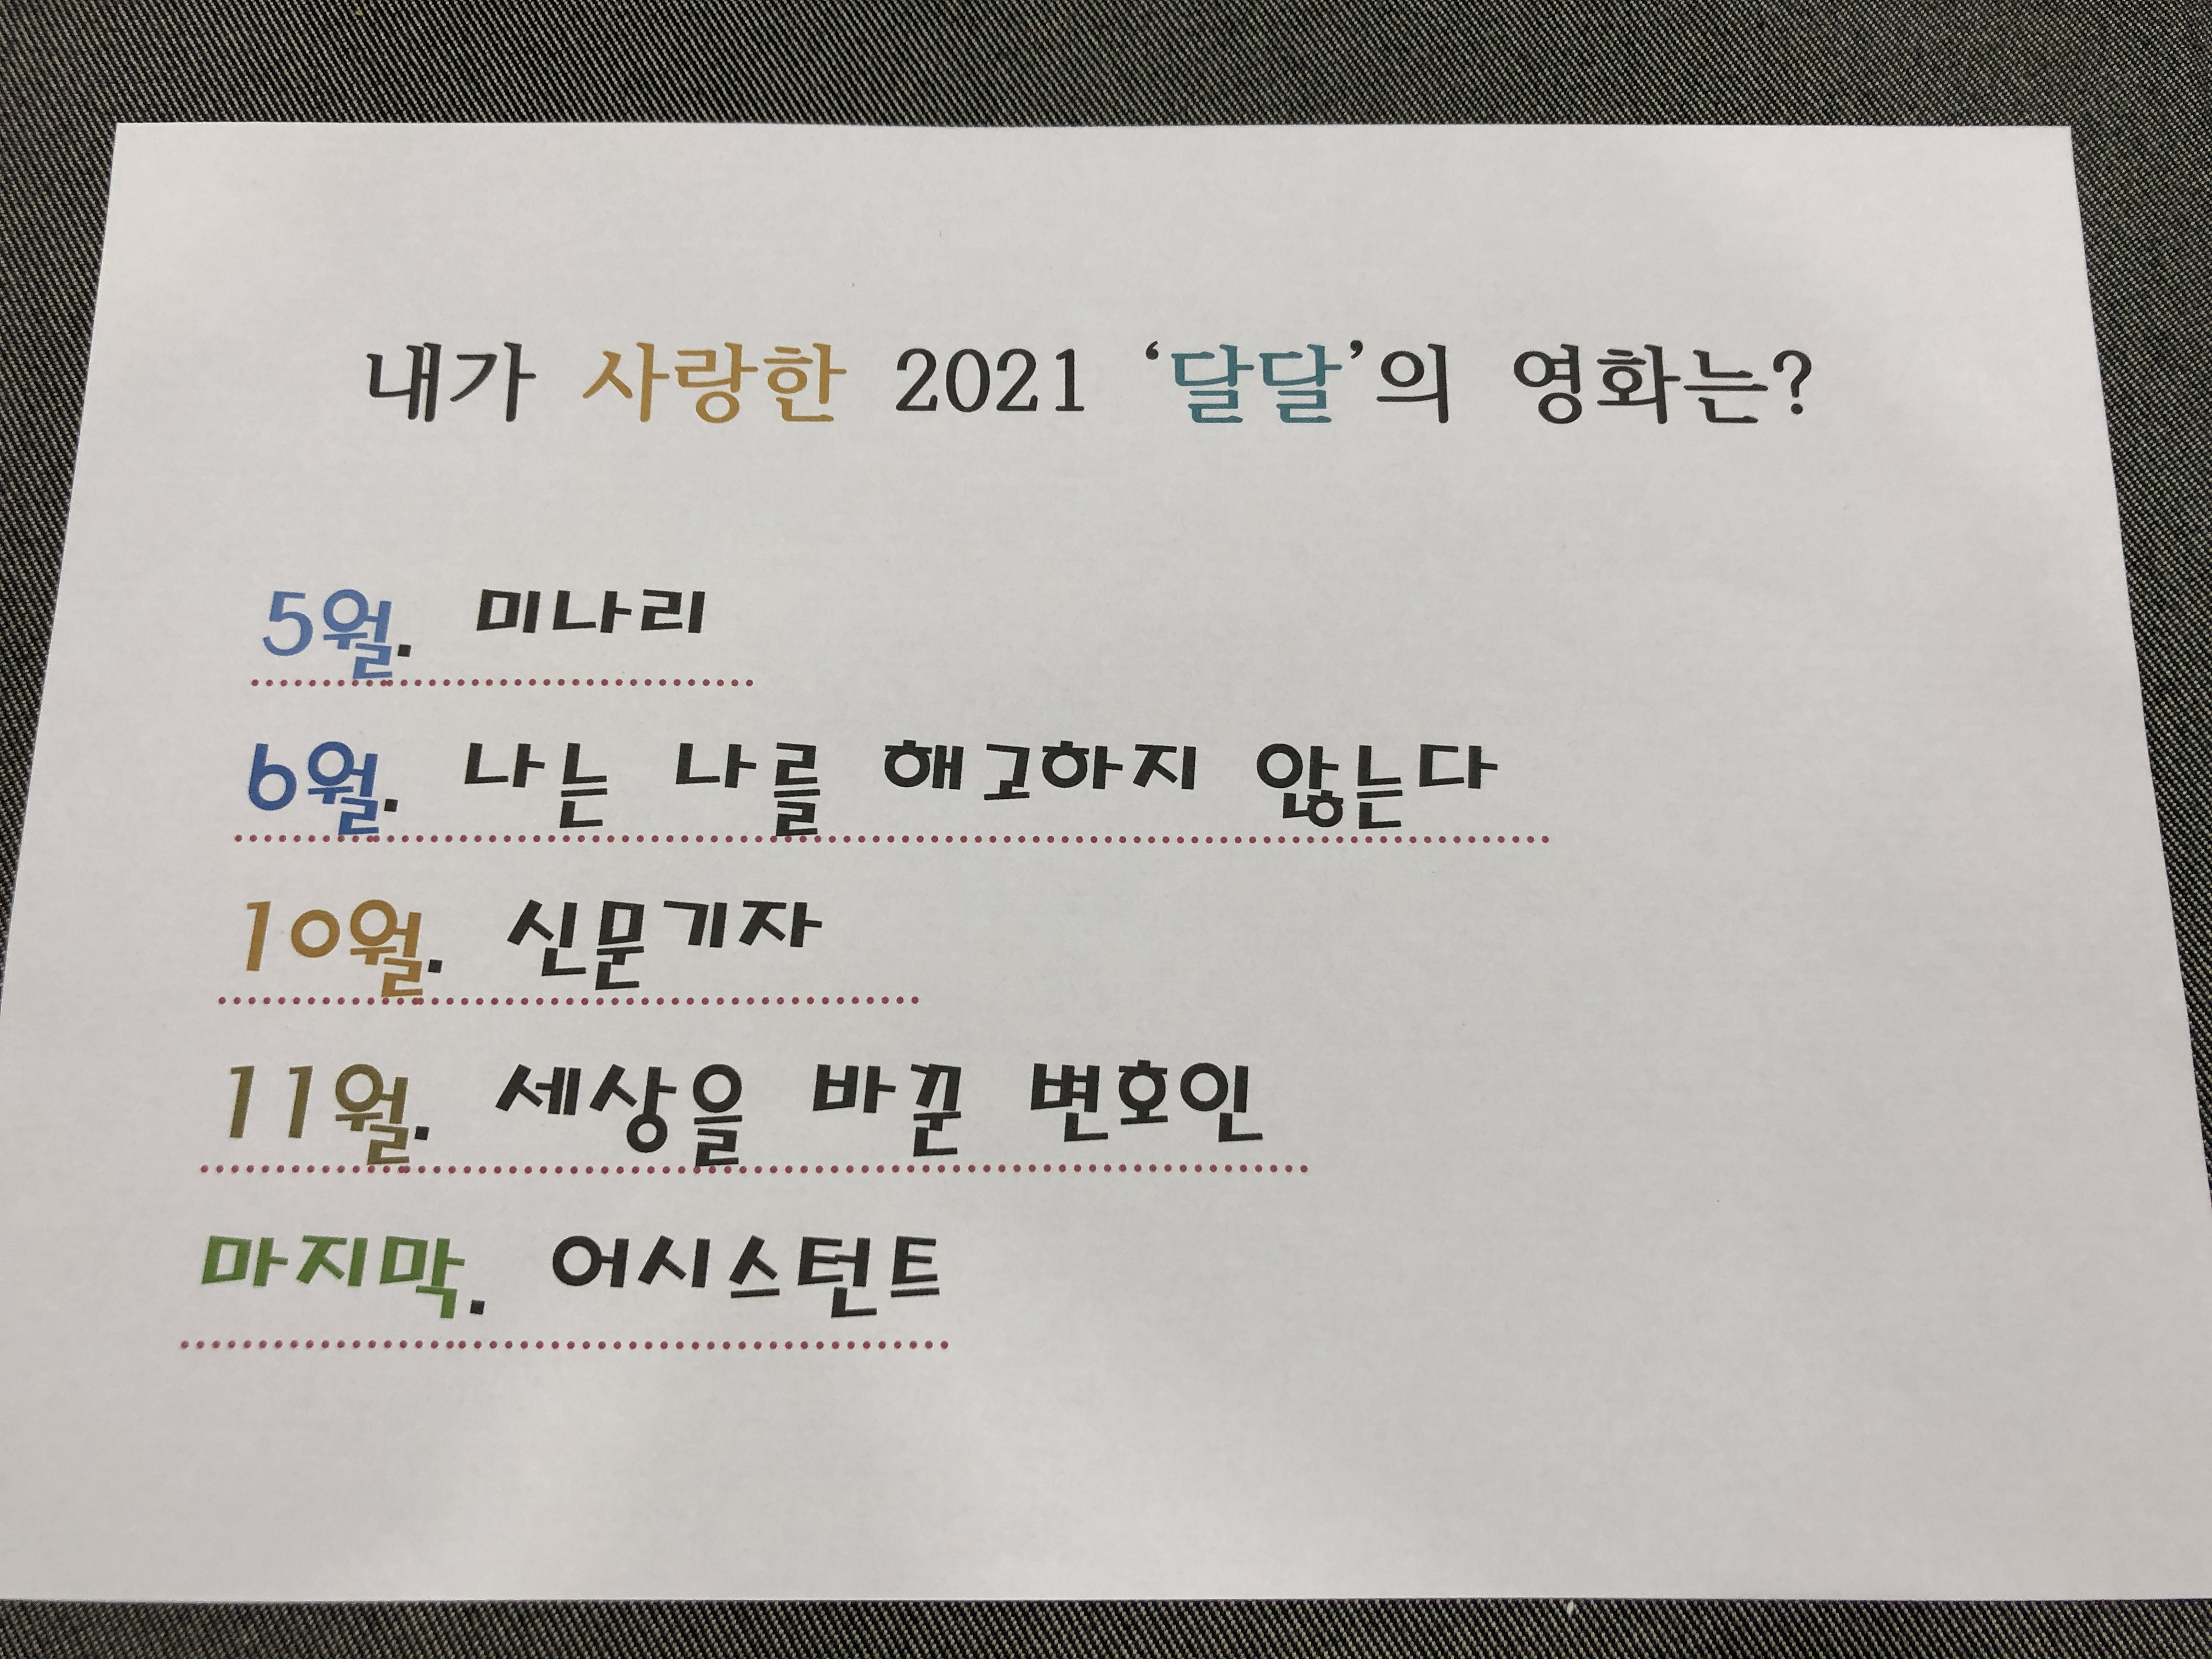 내가 사랑한 2021 ‘달달’의 영화는?
5월. 미나리
6월. 나는 나를 해고하지 않는다
10월. 신문기자
11월. 세상을 바꾼 변호인
마지막. 어시스턴트